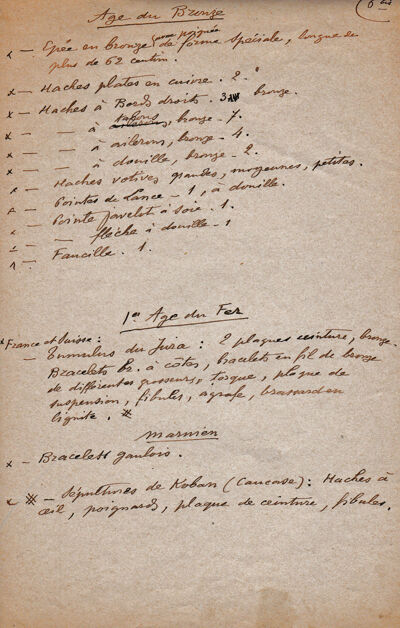 6 bis
Age du Bronze
x — Epée en bronze, avec poignée de forme spéciale, longue de
plus de 62 centim.
x — Haches plates en cuivre. 2.
x — Haches à Bords droits. 3 bronze.
x — — à talons, bronze - 7.
x — — à ailerons, bronze - 4.
x — — à douille, bronze - 2.
x — Haches votives grandes, moyennes, petites.
x — Pointes de Lance - 1, à douille.
x — Pointe javelot à soie. 1.
x — — flèche à douille - 1
1 — Faucille. 1.
1er Age du Fer
x France et Suisse :
— Tumulus du Jura : 2 plaques ceinture, bronze.
Bracelets br. à côtes, bracelets en fil de bronze
de différentes grosseurs, torque, plaque de
suspension, fibules, agrafe, brassard en
lignite. #
Marnien
x — Bracelets gaulois.
x # — Sépultures de Koban (Caucase) : Haches à
œil, poignards, plaque de ceinture, fibules.